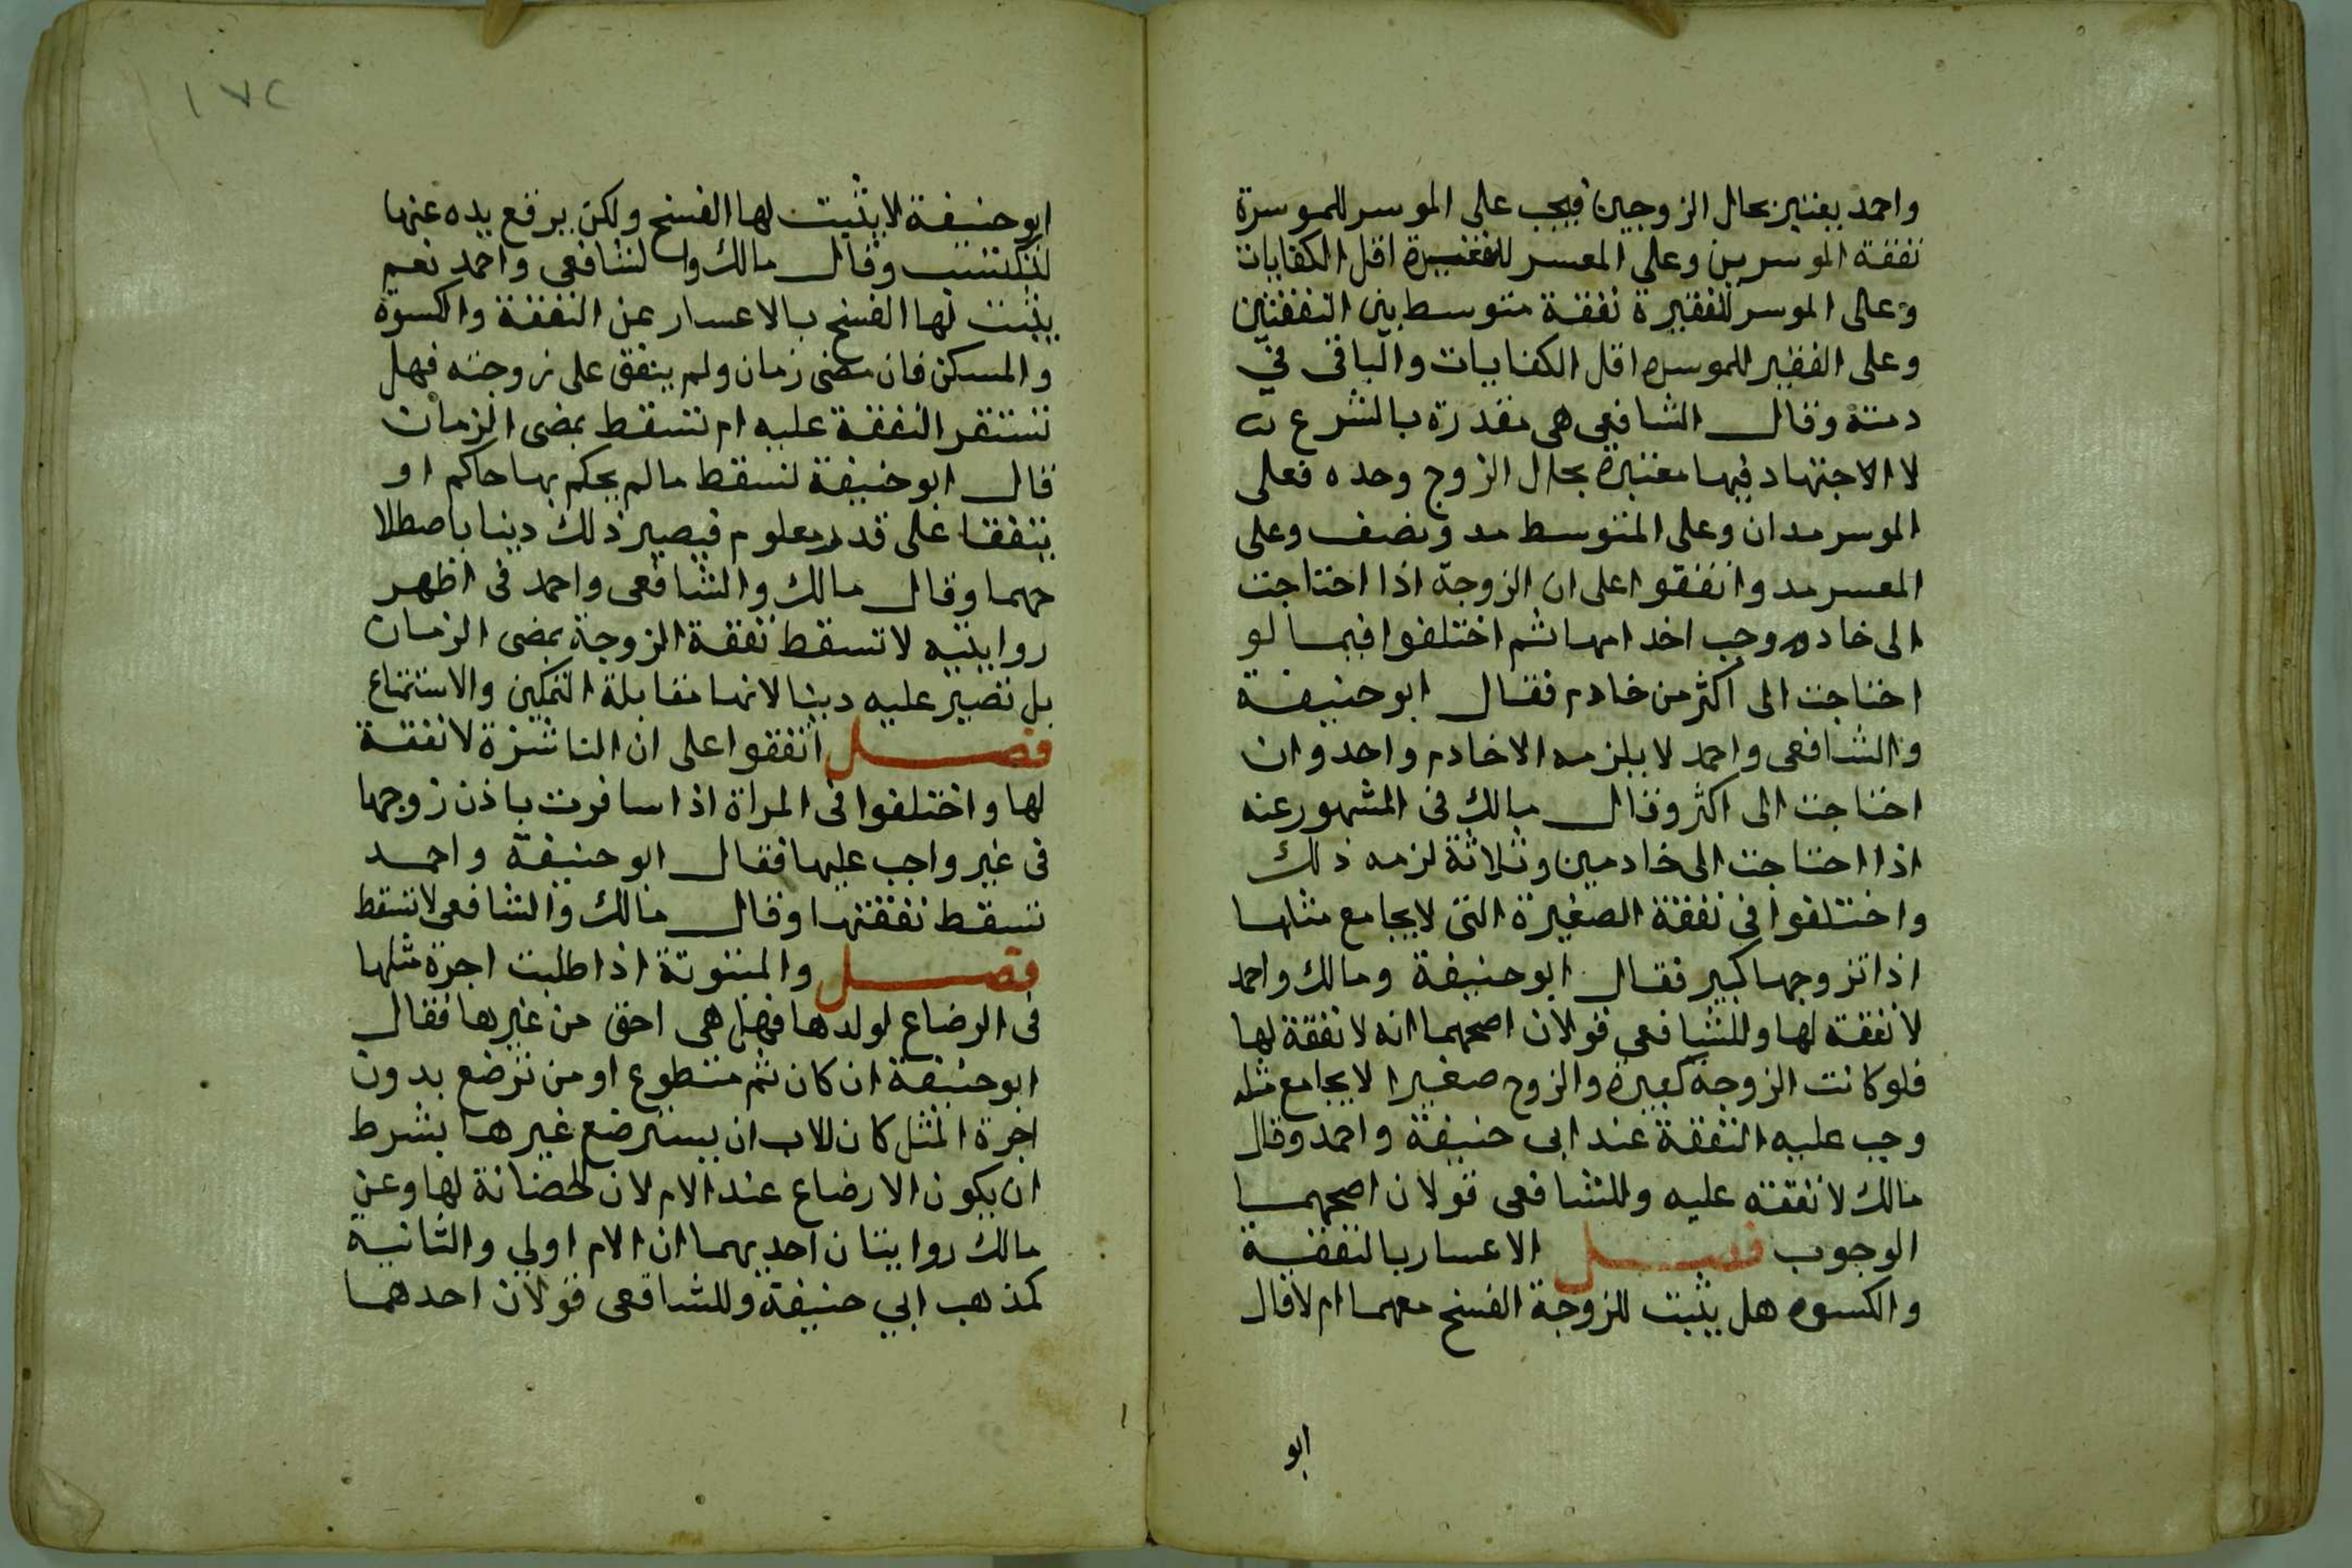 واحمد يعتبر بحال الزوجين فيجب على الموسر للموسرة
نفقة الموسرين وعلى المعسر للفقيرة اقل الكفايات
وعلى الموسر للفقيرة نفقة متوسط بين النفقتين
وعلى الفقير للموسره اقل الكفايات والباقى في
دمته وقال الشافعي هى مقدرة بالشرع
لا الاجتهاد فيها معتبرة بحال الزوج وحده فعلى
الموسر مدان وعلى المتوسط مد ونصف وعلى
المعسر مد واتفقوا على ان الزوجة اذا احتاجت
الى خادم وجب اخدامها ثم اختلفوا فيما لو
احتاجت الى اكثر من خادم فقال ابو حنيفة
والشافعى واحمد لا يلزمه الا خادم واحد وان
احتاجت الى اكثر وقال مالك فى المشهور عنه
اذا احتاجت الى خادمين وثلاثة لزمه ذلك
واختلفوا فى نفقة الصغيرة التى لا يجامع مثلها
اذا تزوجها كبير فقال ابو حنيفة ومالك واحمد
لا نفقة لها وللشافعى قولان اصحهما انه لا نفقة لها
فلو كانت الزوجة كبيرة والزوج صغيرا لا يجامع مثله
وجب عليه النفقة عند ابى حنيفة واحمد وقال
مالك لا نفقة عليه وللشافعى قولان اصحهما
الوجوب فصل الاعسار بالنفقة
والكسوه هل يثبت للزوجة الفسخ معهما ام لا قال
ابو
١٧٢
ابو حنيفة لا يثبت لها الفسخ ولكن يرفع يده عنها
لتكتسب وقال مالك والشافعى واحمد نعم
يثبت لها الفسخ بالاعسار عن النفقة والكسوة
والمسكن فان مضى زمان ولم ينفق على زوجته فهل
تستقر النفقة عليه ام تسقط بمضى الزمان
قال ابو حنيفة تسقط مالم يحكم بها حاكم او
يتفقا على قدر معلوم فيصير ذلك دينا باصطلا
حهما وقال مالك والشافعى واحمد فى اظهر
روايتيه لا تسقط نفقة الزوجة بمضى الزمان
بل تصير عليه دينا لانها مقابلة التمكين والاستمتاع
فصل اتفقوا على ان الناشزة لا نفقة
لها واختلفوا فى المراة اذا سافرت باذن زوجها
فى غير واجب عليها فقال ابو حنيفة واحمد
تسقط نفقتها وقال مالك والشافعى لا تسقط
فصل والمبتوتة اذا طلبت اجرة مثلها
فى الرضاع لولدها فهل هى احق من غيرها فقال
ابو حنيفة ان كان ثم متطوع او من ترضع بدون
اجرة المثل كان للاب ان يسترضع غيرها بشرط
ان يكون الارضاع عند الام لان لحضانة لها وعن
مالك روايتان احديهما ان الام اولي والثانية
كمذهب ابي حنيفة وللشافعى قولان احدهما